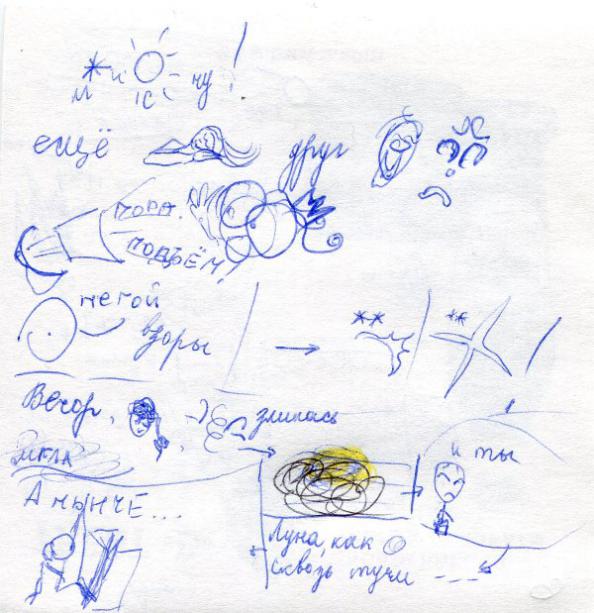 ну!
ещё друг
пора,
подъём!
негой
взоры
Вечор, злилась
мгла
и ты
А нынче...
Луна, как
сквозь тучи ---